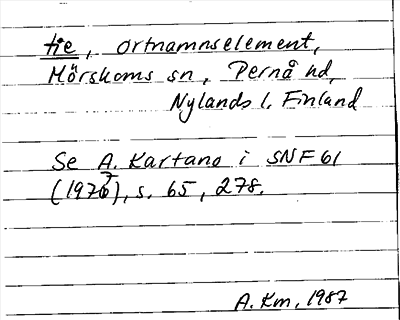 tie, ortnamnselement,
Mörskoms sn, Pernå hd,
Nylands l. Finland
Se A. Kartano i SNF 61
s. 65, 278.
A. Km, 1987